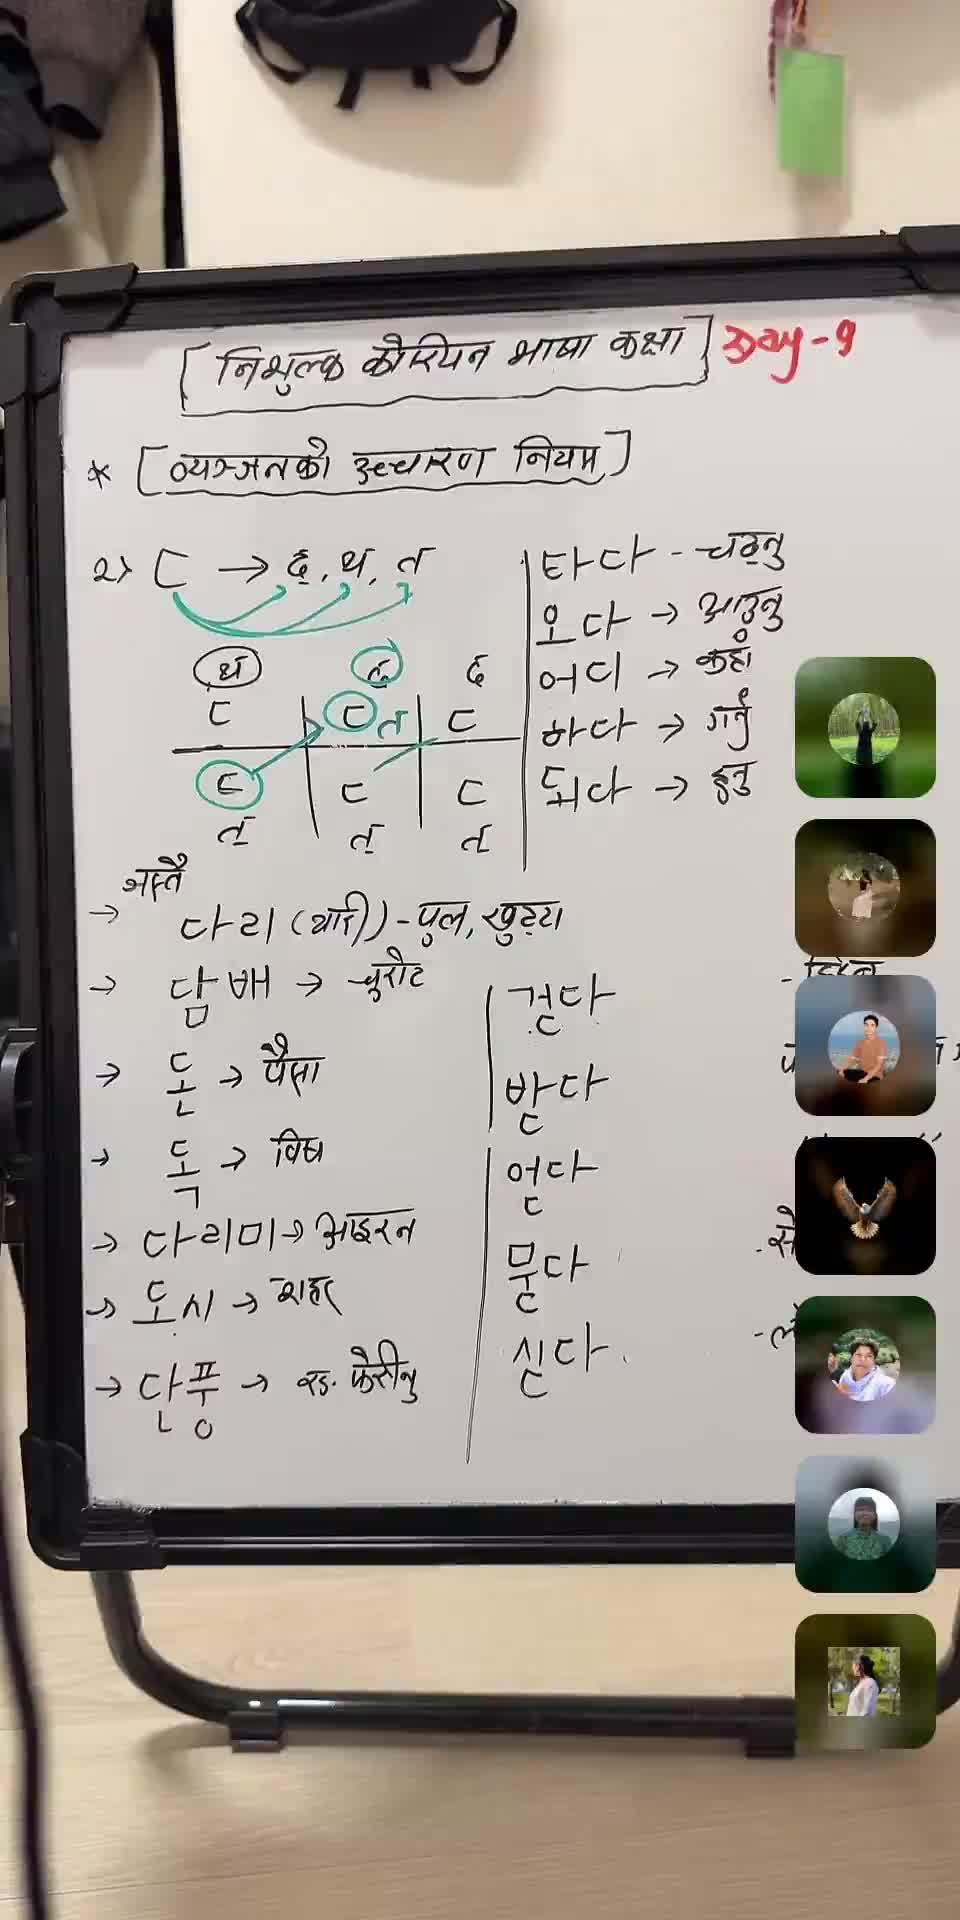 [निशुल्क कोरियन भाषा कक्षा] Day-9
* [व्यञ्जनको उच्चारण नियम]
२> ㄷ → द, थ, त
थ त द
ㄷ ㄷ त ㄷ
ㄷ ㄷ ㄷ
त त त
타다 - चढ्नु
오다 → आउनु
어디 → कहाँ
하다 → गर्नु
되다 → हुनु
जस्तै
→ 다리 (थारी) - पुल, खुट्टा
→ 담배 → चुरोट
→ 돈 → पैसा
→ 독 → विष
→ 다리미 → आइरन
→ 도시 → शहर
→ 단풍 → रङ. फेरीनु
걷다
받다
얻다
묻다
싣다.